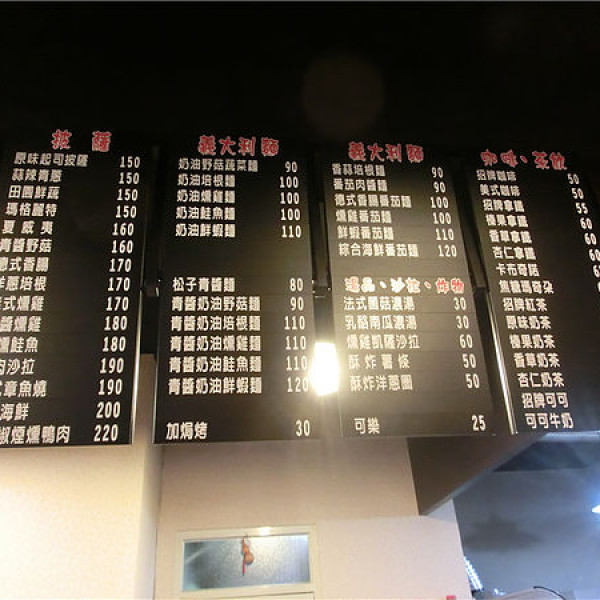 披薩
原味起司披薩 150
蒜辣青蔥 150
田園鮮蔬 150
瑪格麗特 150
夏威夷 160
青醬野菇 160
德式香腸 170
洋蔥培根 170
式燻雞 170
醬燻雞 180
燻鮭魚 180
肉沙拉 190
式章魚燒 190
海鮮 200
椒煙燻鴨肉 220
義大利麵
奶油野菇蔬菜麵 90
奶油培根麵 100
奶油燻雞麵 100
奶油鮭魚麵 100
奶油鮮蝦麵 110
松子青醬麵 80
青醬奶油野菇麵 90
青醬奶油培根麵 110
青醬奶油燻雞麵 110
青醬奶油鮭魚麵 110
青醬奶油鮮蝦麵 120
加焗烤 30
義大利麵
香蒜培根麵 90
番茄肉醬麵 90
德式香腸番茄麵 100
燻雞番茄麵 100
鮮蝦番茄麵 110
綜合海鮮番茄麵 120
湯品、沙拉、炸物
法式蘑菇濃湯 30
乳酪南瓜濃湯 30
燻雞凱薩沙拉 60
酥炸薯條 50
酥炸洋蔥圈 50
可樂 25
咖啡、茶飲
招牌咖啡 50
美式咖啡 50
招牌拿鐵 55
榛果拿鐵 60
香草拿鐵 60
杏仁拿鐵
卡布奇諾
焦糖瑪奇朵
招牌紅茶
原味奶茶
榛果奶茶
香草奶茶
杏仁奶茶
招牌可可
可可牛奶